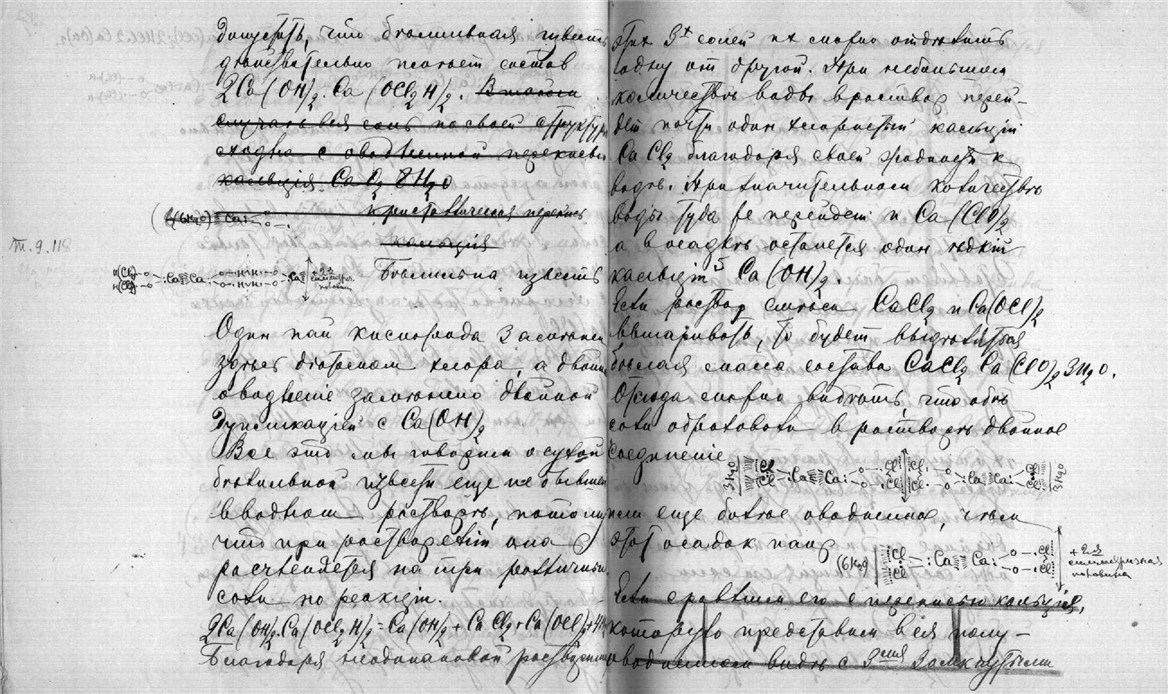 Допустить, что бѣлильная известь
дѣйствительно имѣетъ составъ
2Ca(OH)₂·Ca(OCl₂H)₂. Въ такомъ
случаѣ вся соль по своей структурѣ
сходна съ оводненной перекисью
кальція CaO₂ 8H₂O
(6H₂O) Ca: O– O–. кристаллическая перекись
кальція
Бѣлильна известь
Одинъ пай кислорода замкненъ
здѣсь вторымъ хлора, а двойн
оводненіе замкнено двойной
с Ca(OH)₂
Все это мы говоримъ о сухой
бѣлильной извести еще не бывшей
въ водномъ растворѣ, потому
что при раствореніи она
расчленяется на три различныя
соли по реакціи.
2Ca(OH)₂.Ca(OCl₂H)₂ = Ca(OH)₂ + CaCl₂ + Ca(OCl)₂ + 4H₂O
Благодаря неодинаковой растворим
этих 3х солей их можно отдѣлить
одну от другой. При небольшом
количествѣ воды в раствор перей-
дет почти один хлористый кальцій
CaCl₂ благодаря своей жадности к
водѣ. При значительном количествѣ
воды туда же перейдет и Ca(ClO)₂
а в осадкѣ останется один ѣдкій
кальцій Ca(OH)₂.
Если раствор смѣси CaCl₂ и Ca(OCl)₂
выпаривать, то будет выдѣляться
бѣлая масса состава CaCl₂ Ca(ClO)₂ 3H₂O.
Отсюда можно видѣть, что обѣ
соли образовали в растворѣ двойное
соединеніе
3H₂O Cl: Cl: Ca Ca: O– O– :Cl: :Cl: 3H₂O
или еще болѣе оводненное, чѣм
этот осадок
(6H₂O) Cl: Cl: Ca Ca O– O– Cl: Cl: + 2я
симметричная
половина
Если сравним его с перекисью кальція,
которую представим в ея полу-
оводненном видѣ с 3мя замкнутыми